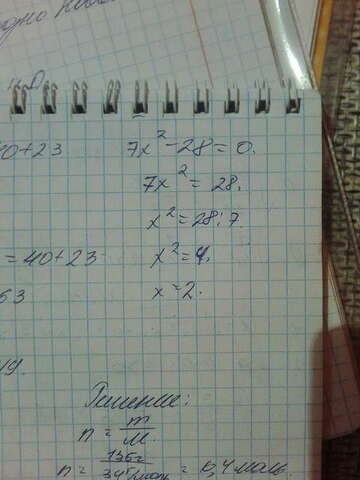 40+23
7x² - 28 = 0.
7x² = 28.
x² = 28:7.
= 40+23
x² = 4.
x = 2.
63
19.
Решение:
n = m/M
n = 136г/34г/моль = 0,4 моль.